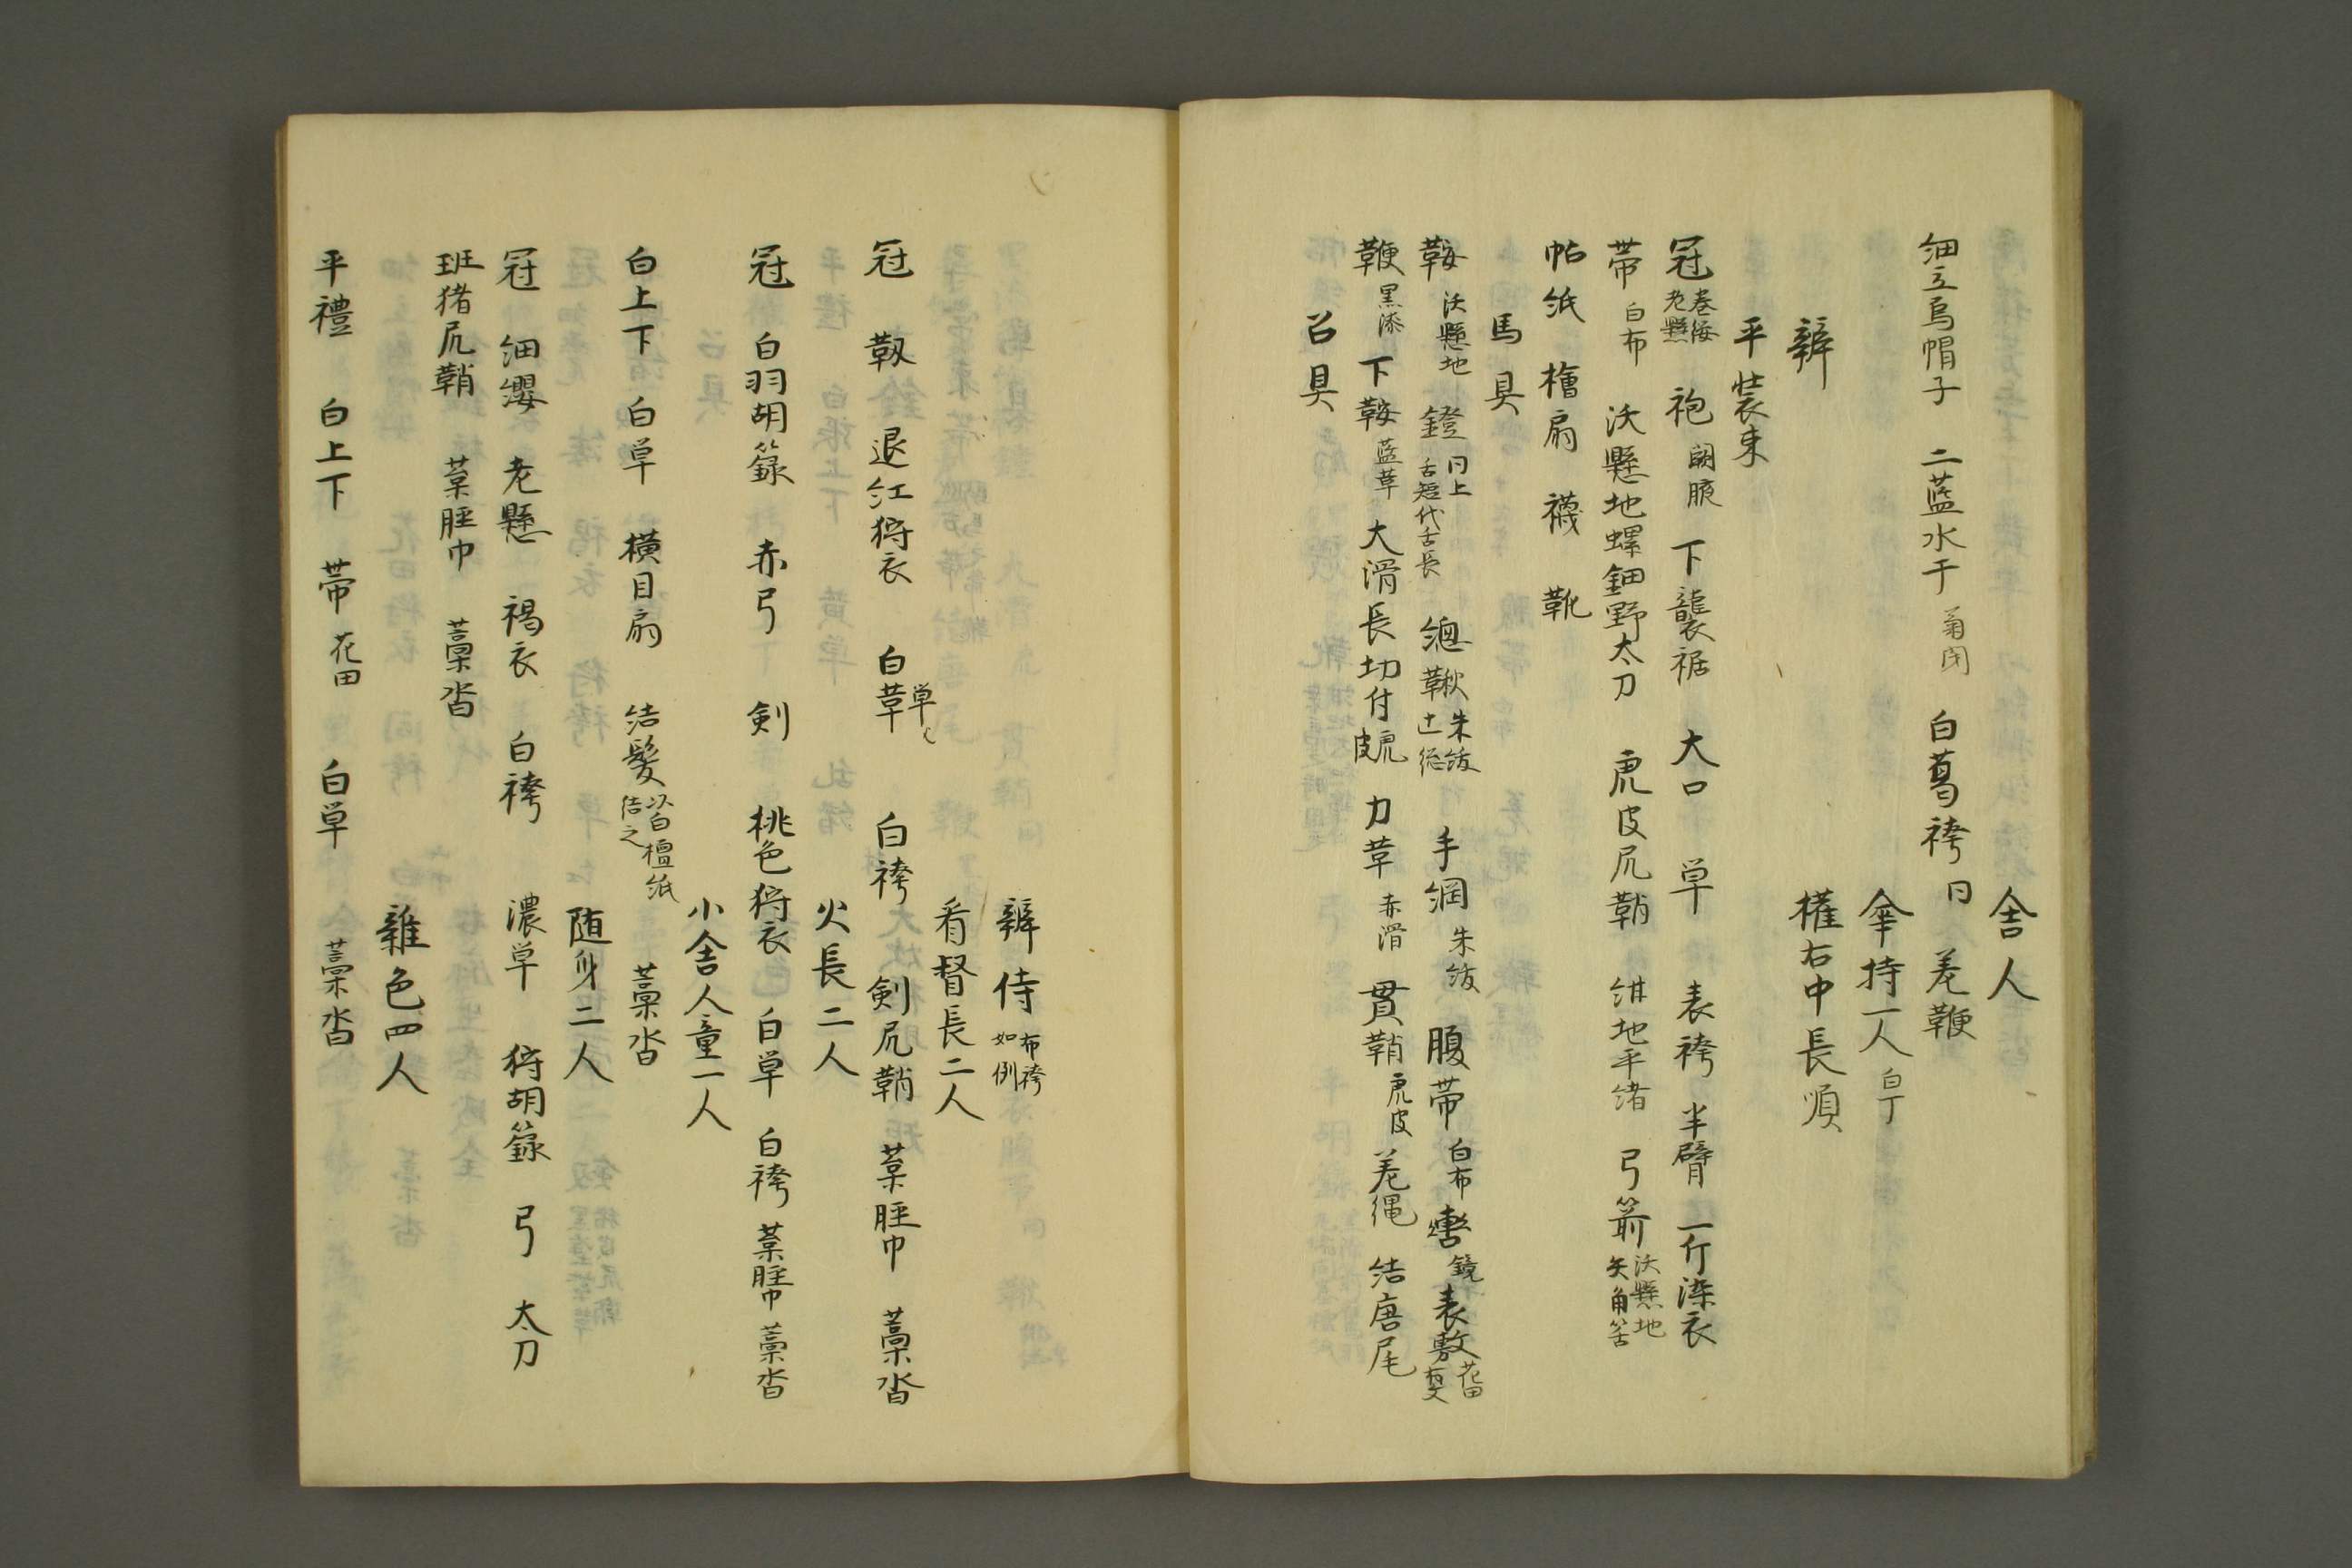 舎人
細立烏帽子 二藍水干 菊閉 白葛袴 同 差鞭
傘持一人 白丁
権右中長順
辨
平装束
冠 巻纓老懸 袍 闕腋 下襲裾 大口 単 表袴 半臂 一斤染衣
帯 白布 沃懸地螺鈿野太刀 虎皮尻鞘 紺地平緒 弓箭 沃懸地矢角筈
帖紙 檜扇 襪 靴
馬具
鞍 沃懸地 鐙 同上舌短代舌長 総鞦 朱紱 手綱 朱紱 腹帯 白布 轡 鏡 表敷 花田有文
鞭 黒漆 下鞍 藍革 大滑長切付 虎皮 力革 赤滑 貫鞘 虎皮 差縄 結唐尾
召具
辨侍 布袴如例
看督長二人
冠 靫 退紅狩衣 白草単 白袴 剣尻鞘 葉脛巾 藁沓
火長二人
冠 白羽胡籙 赤弓 剣 桃色狩衣 白単 白袴 葉脛巾 藁沓
小舎人童一人
白上下 白単 横目扇 結髪 以白檀紙結之 藁沓
随身二人
冠 細纓 老懸 褐衣 白袴 濃単 狩胡籙 弓 太刀
班猪尻鞘 葉脛巾 藁沓
雜色四人
平禮 白上下 帯 花田 白単 藁沓